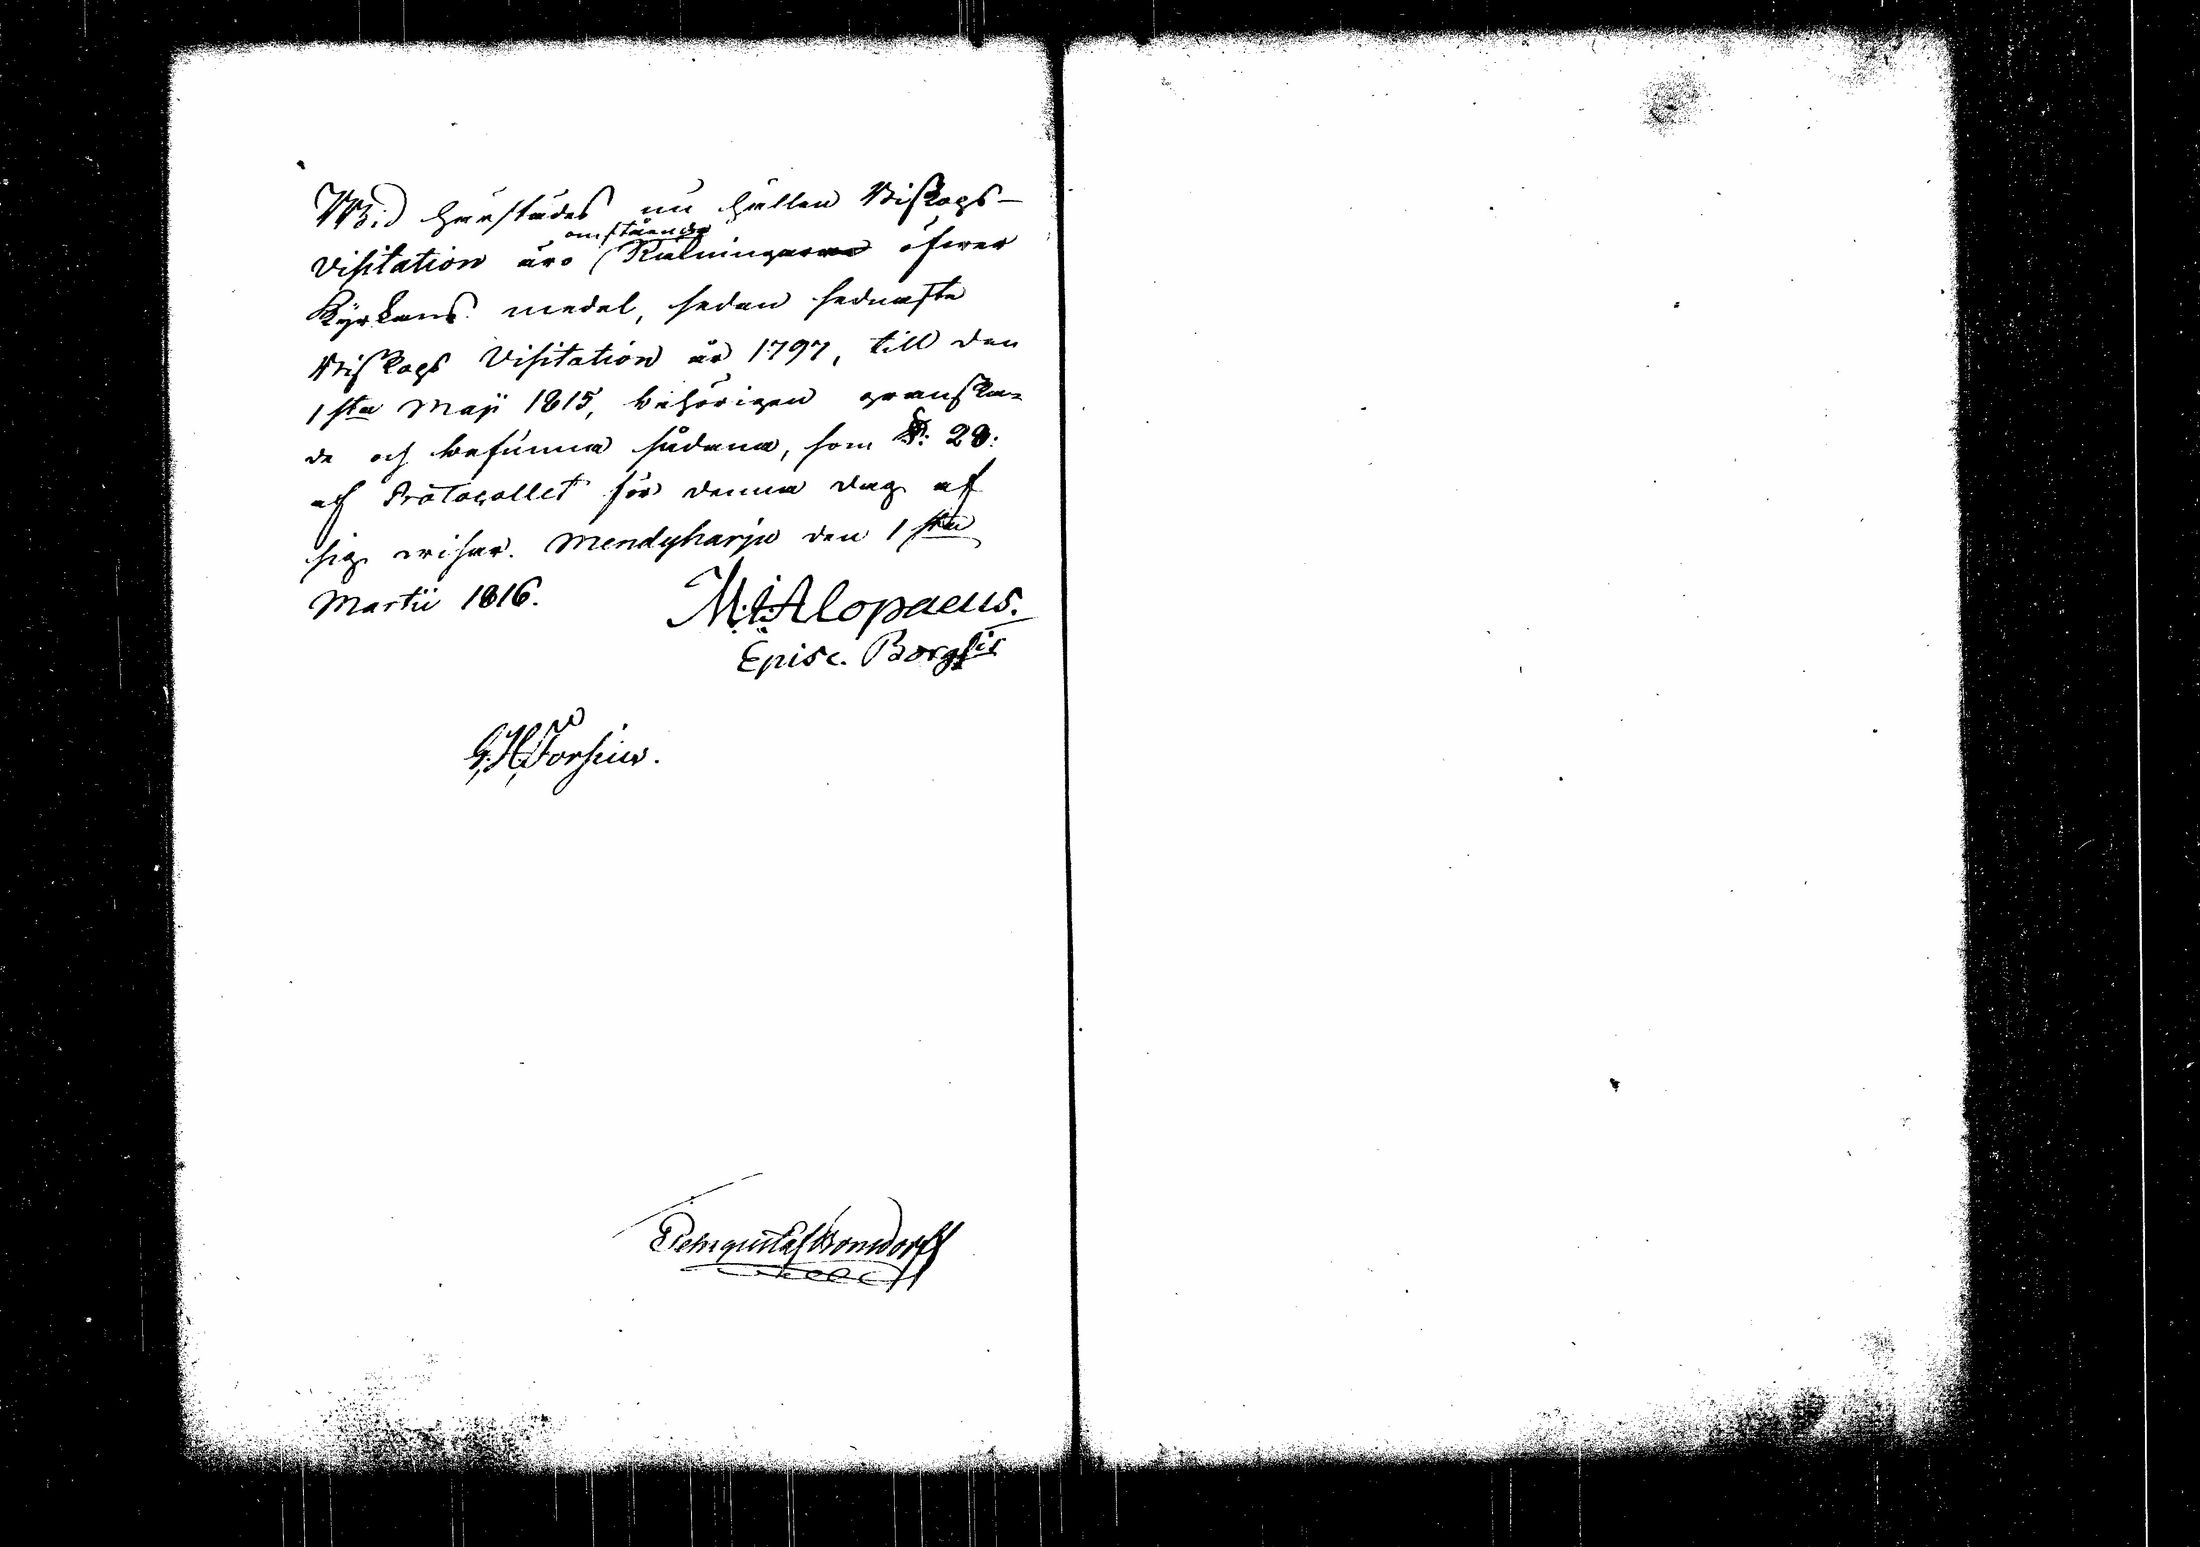 Wid härstädes nu hållen Biskops-
omstående
Visitation äro Räkningarna öfwer
Kyrkans medel, sedan sednaste
Biskops Visitation år 1797, till den
1sta Maji 1815, behörigen granska=
de och befunna sådana, som §: 28:
af Protocollet för denna dag af
sig wisar. Mendyharju den 1sta
Martii 1816.
M. Alopaeus.
Episc. Borgsis
G. H. Forsius.
Pehr Gustaf Bonsdorff